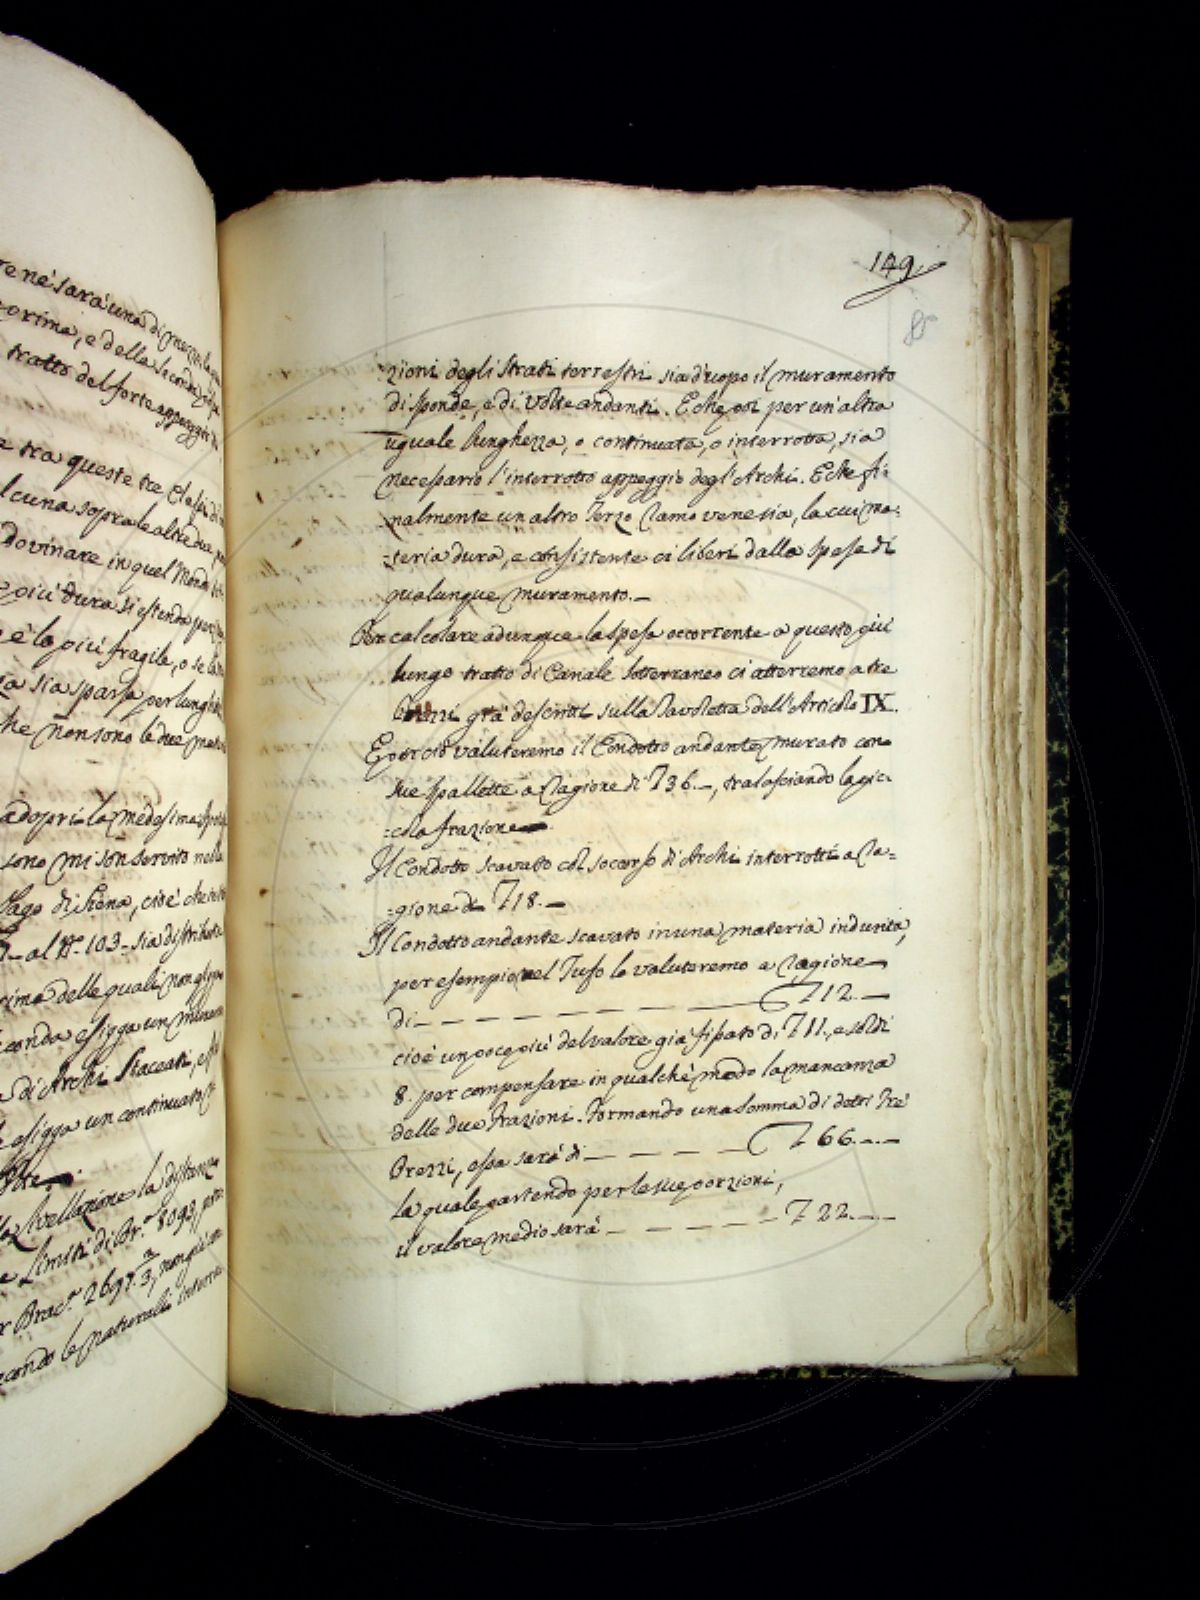 re nè sarà una di mezzo, la
prima, e della seconda
tratto del forte appoggio di
tra queste tre Classi di
alcuna sopra le altre due, per
dovinare in quel Mondo
più dura si estenda per
e la più fragile, o se la
sia sparsa per lunghi
che non sono le due ma
adopri la medesima
sono mi son servito nella
Pago di Siena, cioè che
al N.º 103 - sia distribuita
rima delle quali non
conda esiga un mura
di Archi Staccati, e
esiga un continuato
Livellazione la distanza
Limiti di Br.ª 8093, per
Brac.ª 2697.2/3, non già in
condo le naturali interru
149.
85
=zioni degli Strati terrestri sia d'uopo il muramento
di sponde, e di Volte andanti. E che poi per un'altra
uguale lunghezza, o continuata, o interrotta, sia
necessario l'interrotto appoggio degl'Archi. E che fi=
nalmente un altro Terzo Ramo venesia, la cui ma=
=teria dura, e consistente ci liberi dalla spesa di
qualunque muramento. —
Per calcolare adunque la spesa occorrente a questo più
lungo tratto di Canale Sotterraneo ci atterremo a tre
Prezzi già descritti sulla Tavoletta dell'Articolo IX.
E perciò valuteremo il Condotto andante murato con
sue spallette a ragione di 736. —, tralasciando la pic=
=cola frazione —
Il Condotto scavato col soccorso di Archi interrotti a ra=
=gione di 718. —
Il Condotto andante scavato in una materia indurita,
per esempio, nel Tufo lo valuteremo a ragione
di — — — — — — — 712. —
cioè un poco più del valore già fissato di 711, e soldi
8. per compensare in qualche modo la mancanza
delle due frazioni. Formando una somma di detti Tre
Prezzi, essa sarà di — — — — 766. — —
la quale partendo per le sue porzioni,
il valore medio sarà — — — — 722. —